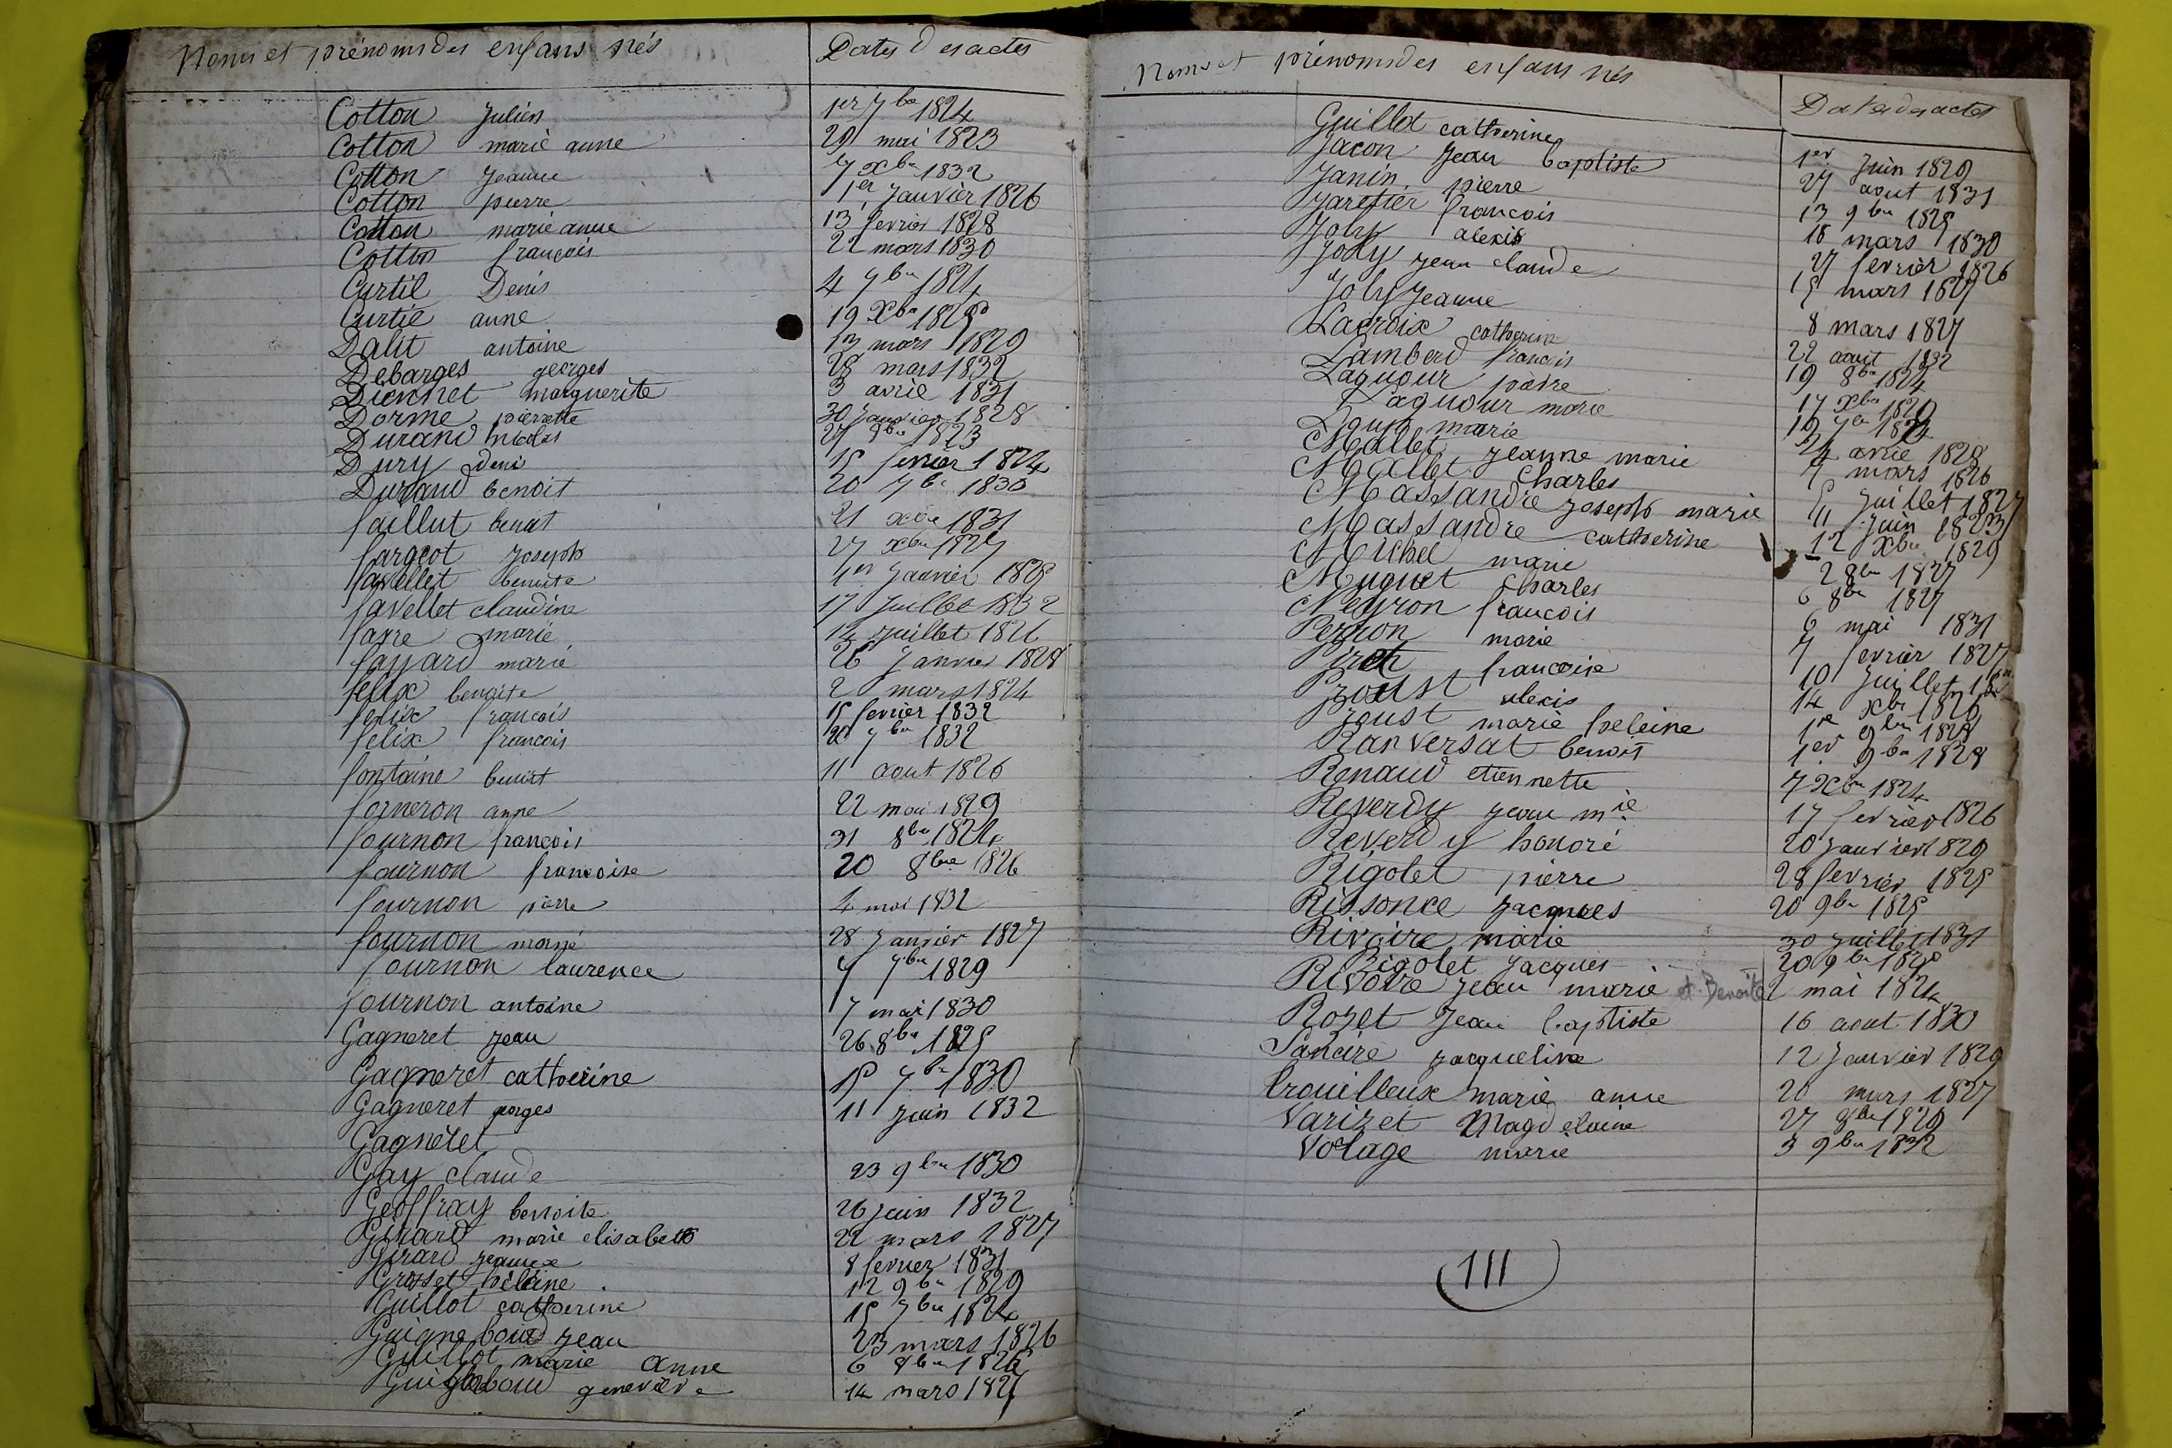 Noms et prénoms des enfans nés Dates des actes
Cotton Julien 1er 7bre 1824
Cotton marie anne 29 mai 1823
Cotton Jeanne 7 Xbre 1832
Cotton pierre 1er Janvier 1826
Cotton marie anne 13 fevrier 1828
Cotton françois 22 mars 1830
Curtil Denis 4 7bre 1824
Curtil anne 19 Xbre 1828
Dalit antoine 13 mars 1829
Debarges georges 28 mars 1832
Dionnet marguerite 3 avril 1831
Dorme pierrette 30 Janvier 1828
Durand nicolas 27 9bre 1823
Dury deni 15 fevrier 1824
Durand benoit 20 7bre 1830
faillut benoit 21 xbre 1831
fargeot Joseph 27 xbre 1825
favellet benoite 1er Janvier 1828
favellet claudine 17 Juillet 1832
favre marie 14 Juillet 1826
fayard marie 26 Janvier 1828
felix benoite 2 mars 1824
felix françois 15 fevrier 1832
felix françois 7bre 1832
fontaine benoit 11 aout 1826
forneron anne 22 mai 1829
fournon françois 31 8bre 1824
fournon françoise 20 8bre 1826
fournon pierre 4 mai 1832
fournon marie 28 Janvier 1827
fournon laurence 7 7bre 1829
fournon antoine 7 mai 1830
Gagneret Jean 26 8bre 1825
Gagneret catherine 15 7bre 1830
Gagneret georges 11 Juin 1832
Gagneret
Gay claude 23 9bre 1830
Geoffray benoite 26 juin 1832
Girard marie elisabeth 22 mars 1827
Girard Jeanne 8 fevrier 1831
Grosset hélène 12 9bre 1829
Guillot catherine 15 7bre 1824
Guignebourd Jean 23 mars 1826
Guillot marie anne 6 8bre 1826
geneviève 14 mars 1827
Noms et prénoms des enfans nés Dates des actes
Guillot catherine 1er Juin 1829
Jacon Jean baptiste 27 aout 1831
Janin pierre 13 9bre 1825
Jaretier françois 18 mars 1830
Joly alexis 27 fevrier 1826
Joly Jean claude 15 mars 1827
Joly Jeanne 8 mars 1827
Lacroix catherine 22 aout 1832
Lamberd françois 19 8bre 1824
Laguour pierre 17 Xbre 1829
Laguour marie 19 7bre
marie
Mallet Jeanne marie avril 1828
Mallet Charles 7 mars 1826
Massandre Joseph marie Juillet 1827
Massandre catherine 11 Juin 1823
Michel marie 12 Xbre 1829
Muguet Charles 2 8bre 1827
Neyron françois 6 8bre 1827
Pernon marie 6 mai 1831
françoise 7 fevrier 1827
alexis 10 Juillet
marie heleine 14 xbre 1826
Ranversat benoit 1er 9bre 1828
Renaud etiennette 1er 9bre 1828
Reverdy Jean mie 7 Xbre 1824
Reverdy honoré 17 fevrier 1826
Rigolet pierre 20 Janvier 1829
Rissonce Jacques 28 fevrier 1825
Rivoire marie 20 9bre 1825
Rigolet Jacques 30 Juillet 1831
Rivoire Jean marie et Benoite 20 9bre
2 mai 1824
Rozet Jean baptiste 16 aout 1830
Sancire Jacqueline 12 Janvier 1829
trouilleux marie anne 20 mars 1827
Varizet Magdelaine 27 8bre 1829
Volage marie 3 9bre 1832
111